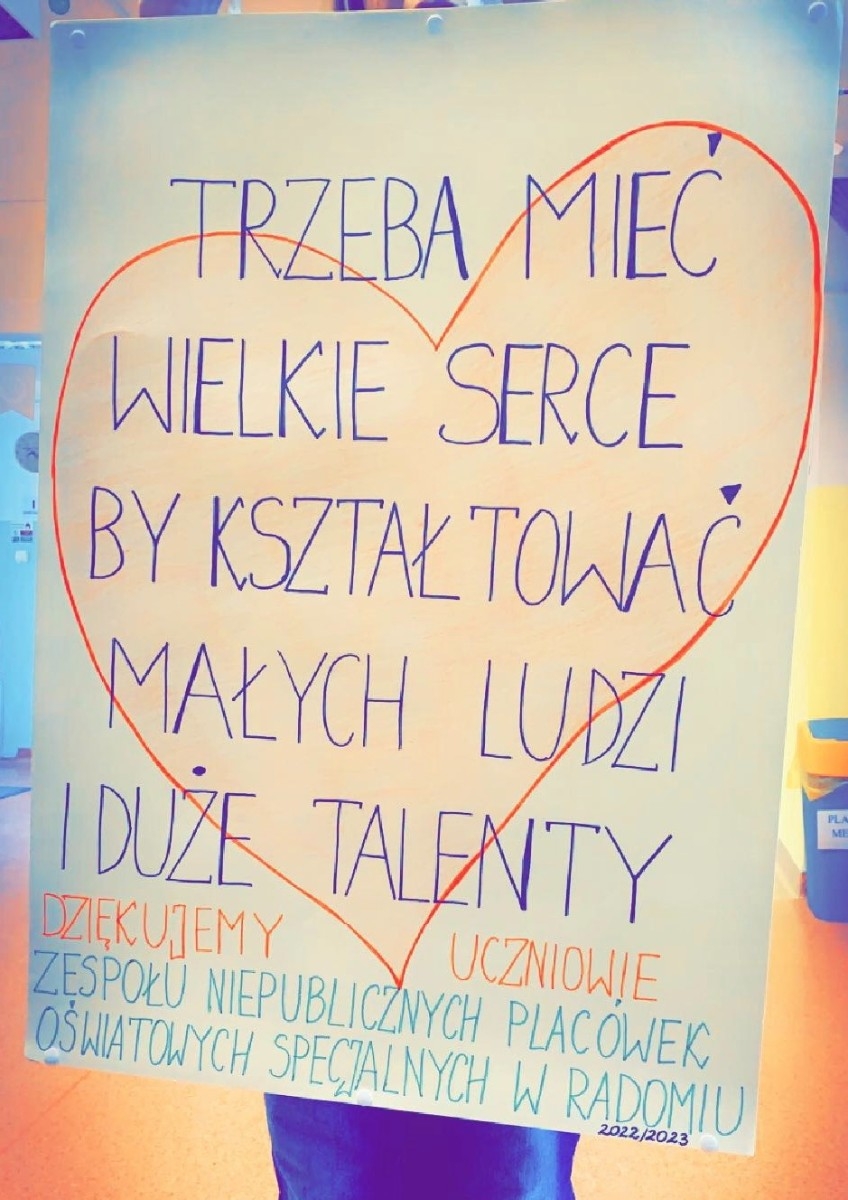 TRZEBA MIEĆ
WIELKIE SERCE
BY KSZTAŁTOWAĆ
MAŁYCH LUDZI
I DUŻE TALENTY
DZIĘKUJEMY UCZNIOWIE
ZESPOŁU NIEPUBLICZNYCH PLACÓWEK
OŚWIATOWYCH SPECJALNYCH W RADOMIU
2022/2023